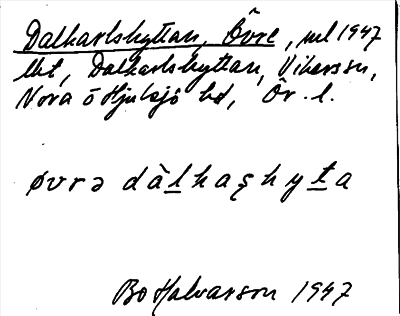 Dalkarlshyttan, Övre, ml 1947
lht, Dalkarlshyttan, Vikerssn,
Nora o Hjulsjö hd, Ör. l.
øvrə dàlkaʂhyta
Bo Halvarson 1947